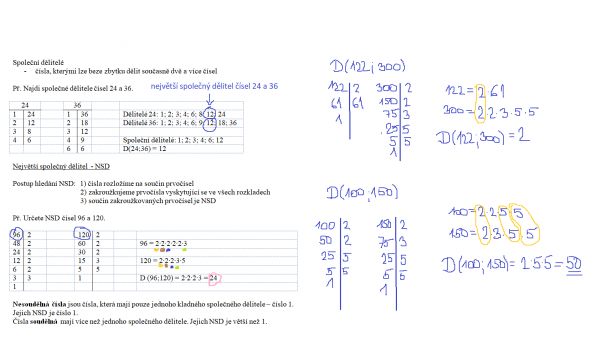 Společní dělitelé
- čísla, kterými lze beze zbytku dělit současně dvě a více čísel
největší společný dělitel čísel 24 a 36
Př. Najdi společné dělitele čísel 24 a 36.
24 36
1 24 1 36 Dělitelé 24: 1; 2; 3; 4; 6; 8; 12; 24
2 12 2 18 Dělitelé 36: 1; 2; 3; 4; 6; 9; 12; 18; 36
3 8 3 12
4 6 4 9 Společní dělitelé: 1; 2; 3; 4; 6; 12
6 6 D(24;36) = 12
Největší společný dělitel - NSD
Postup hledání NSD: 1) čísla rozložíme na součin prvočísel
2) zakroužkujeme prvočísla vyskytující se ve všech rozkladech
3) součin zakroužkovaných prvočísel je NSD
Př. Určete NSD čísel 96 a 120.
96 2 120 2
48 2 60 2 96 = 2·2·2·2·2·3
24 2 30 2
12 2 15 3 120 = 2·2·2·3·5
6 2 5 5
3 3 1 D (96;120) = 2·2·2·3 = 24
1
Nesoudělná čísla jsou čísla, která mají pouze jednoho kladného společného dělitele – číslo 1.
Jejich NSD je číslo 1.
Čísla soudělná mají více než jednoho společného dělitele. Jejich NSD je větší než 1.
D(122;300)
122 2 300 2
61 61 150 2
1 75 3
25 5
5 5
1
122 = 2·61
300 = 2·2·3·5·5
D(122;300) = 2
D(100;150)
100 2 150 2
50 2 75 3
25 5 25 5
5 5 5 5
1 1
100 = 2·2·5·5
150 = 2·3·5·5
D(100;150) = 2·5·5 = 50